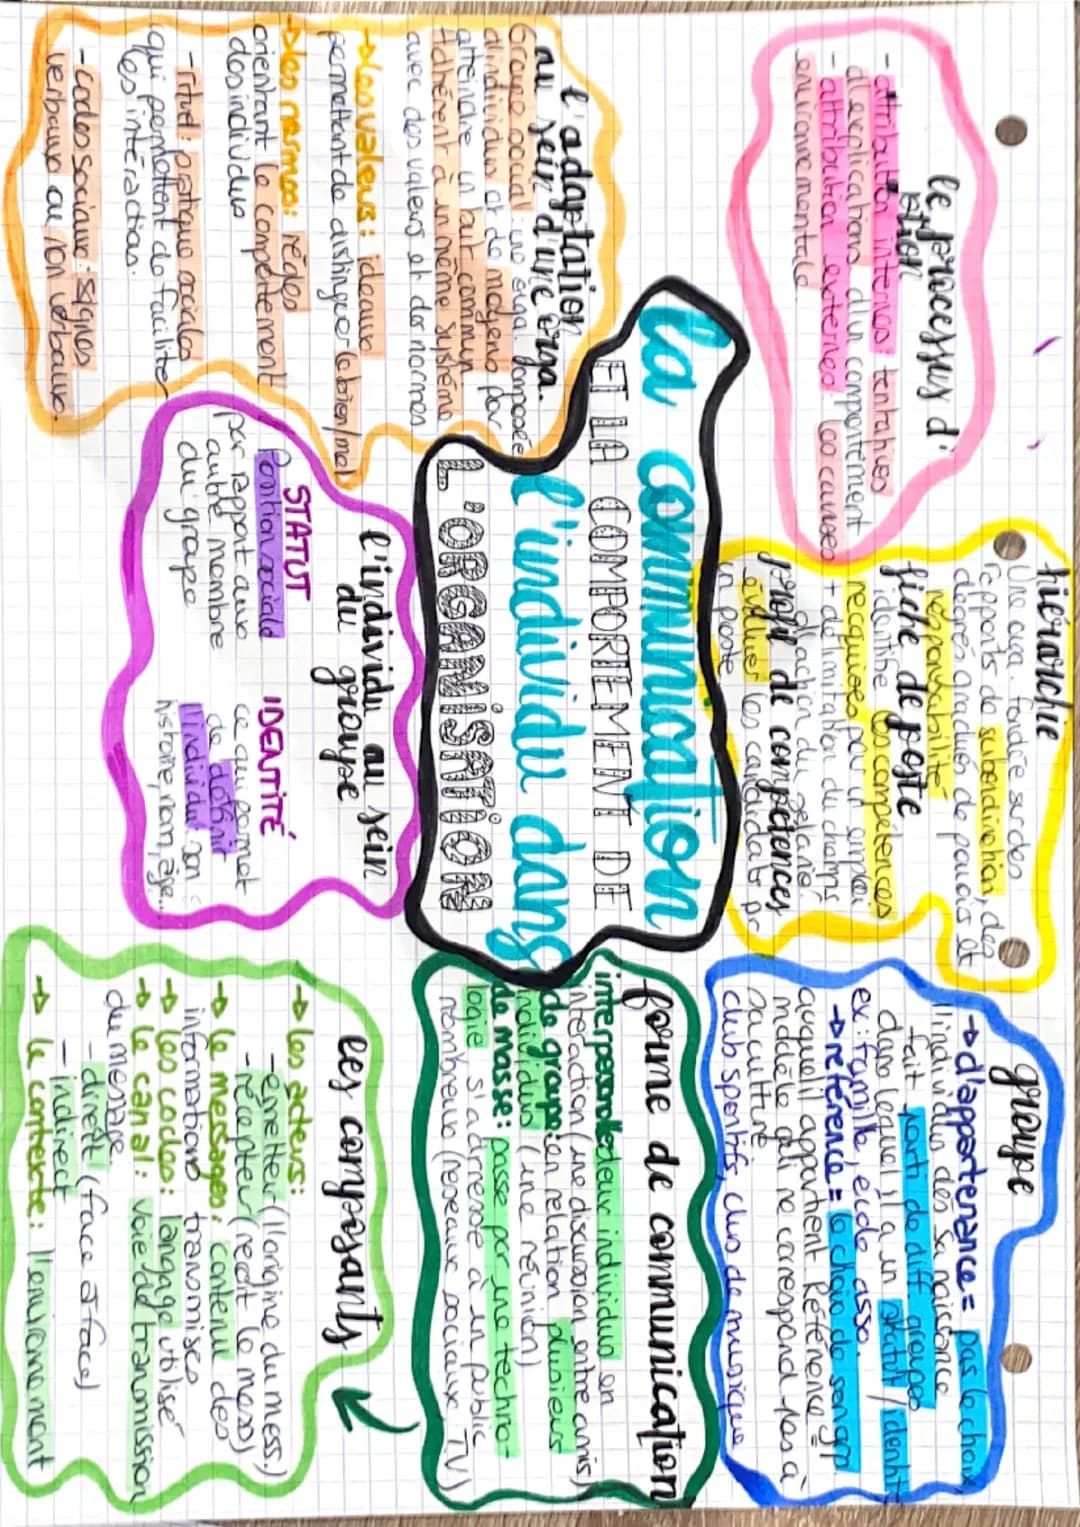 le processus d'
ption
- attribution internes: tentatives
d'explications d'un comportement
- attribution externes: les causes
environnementale
hiérarchie
Une orga. fondée sur des
rapports de subordination, des
degrés gradués de pouvoirs et
responsabilité
fiche de poste
identifie les compétences
recquises pour un emploi
+ délimitation du champs
d'action du salarié
profil de compétences
évaluer les candidats pr
un poste
groupe
→ d'appartenance = pas le choix,
l'individu dès sa naissance
fait parti de diff groupes
dans lequel il a un statut / identité
ex : famille, école, asso.
→ référence = le choix de son grp
auquel il appartient. Référence =
modèle qui ne correspond pas à
sa culture
club sportifs, clubs de musique
la communication
ET LA COMPORTEMENT DE
l'individu dans
L'ORGANISATION
l'adaptation
au sein d'une orga.
Groupe social : une orga. composée
d'individus et de moyens pour
atteindre un but commun
Adhérent à un même système
avec des valeurs et des normes
→ Les valeurs : idéaux
permettant de distinguer le bien/mal
→ les normes : règles
orientant le comportement
des individus
- rituel : pratique sociales
qui permettent de faciliter
les intéractions.
- codes sociaux : signes
verbaux ou non verbaux.
l'individu au sein
du groupe
STATUT
Position sociale
par rapport aux
autre membre
du groupe
IDENTITÉ
ce qui permet
de définir
l'individu son
histoire, nom, âge...
forme de communication
interpersonnelle: deux individus en
interaction (une discussion entre amis)
de groupe: en relation plusieurs
individus (une réunion)
de masse: passe par une techno-
logie s'adresse à un public
nombreux (réseaux sociaux, TV)
les composants
→ les acteurs:
- émetteur (l'origine du mess.)
- récepteur (reçoit le mess)
→ le messages: contenu des
informations transmises
→ les codes: langage utilisé
→ le canal: voie de transmission
du message
- direct (face à face)
- indirect
→ le contexte: l'environnement